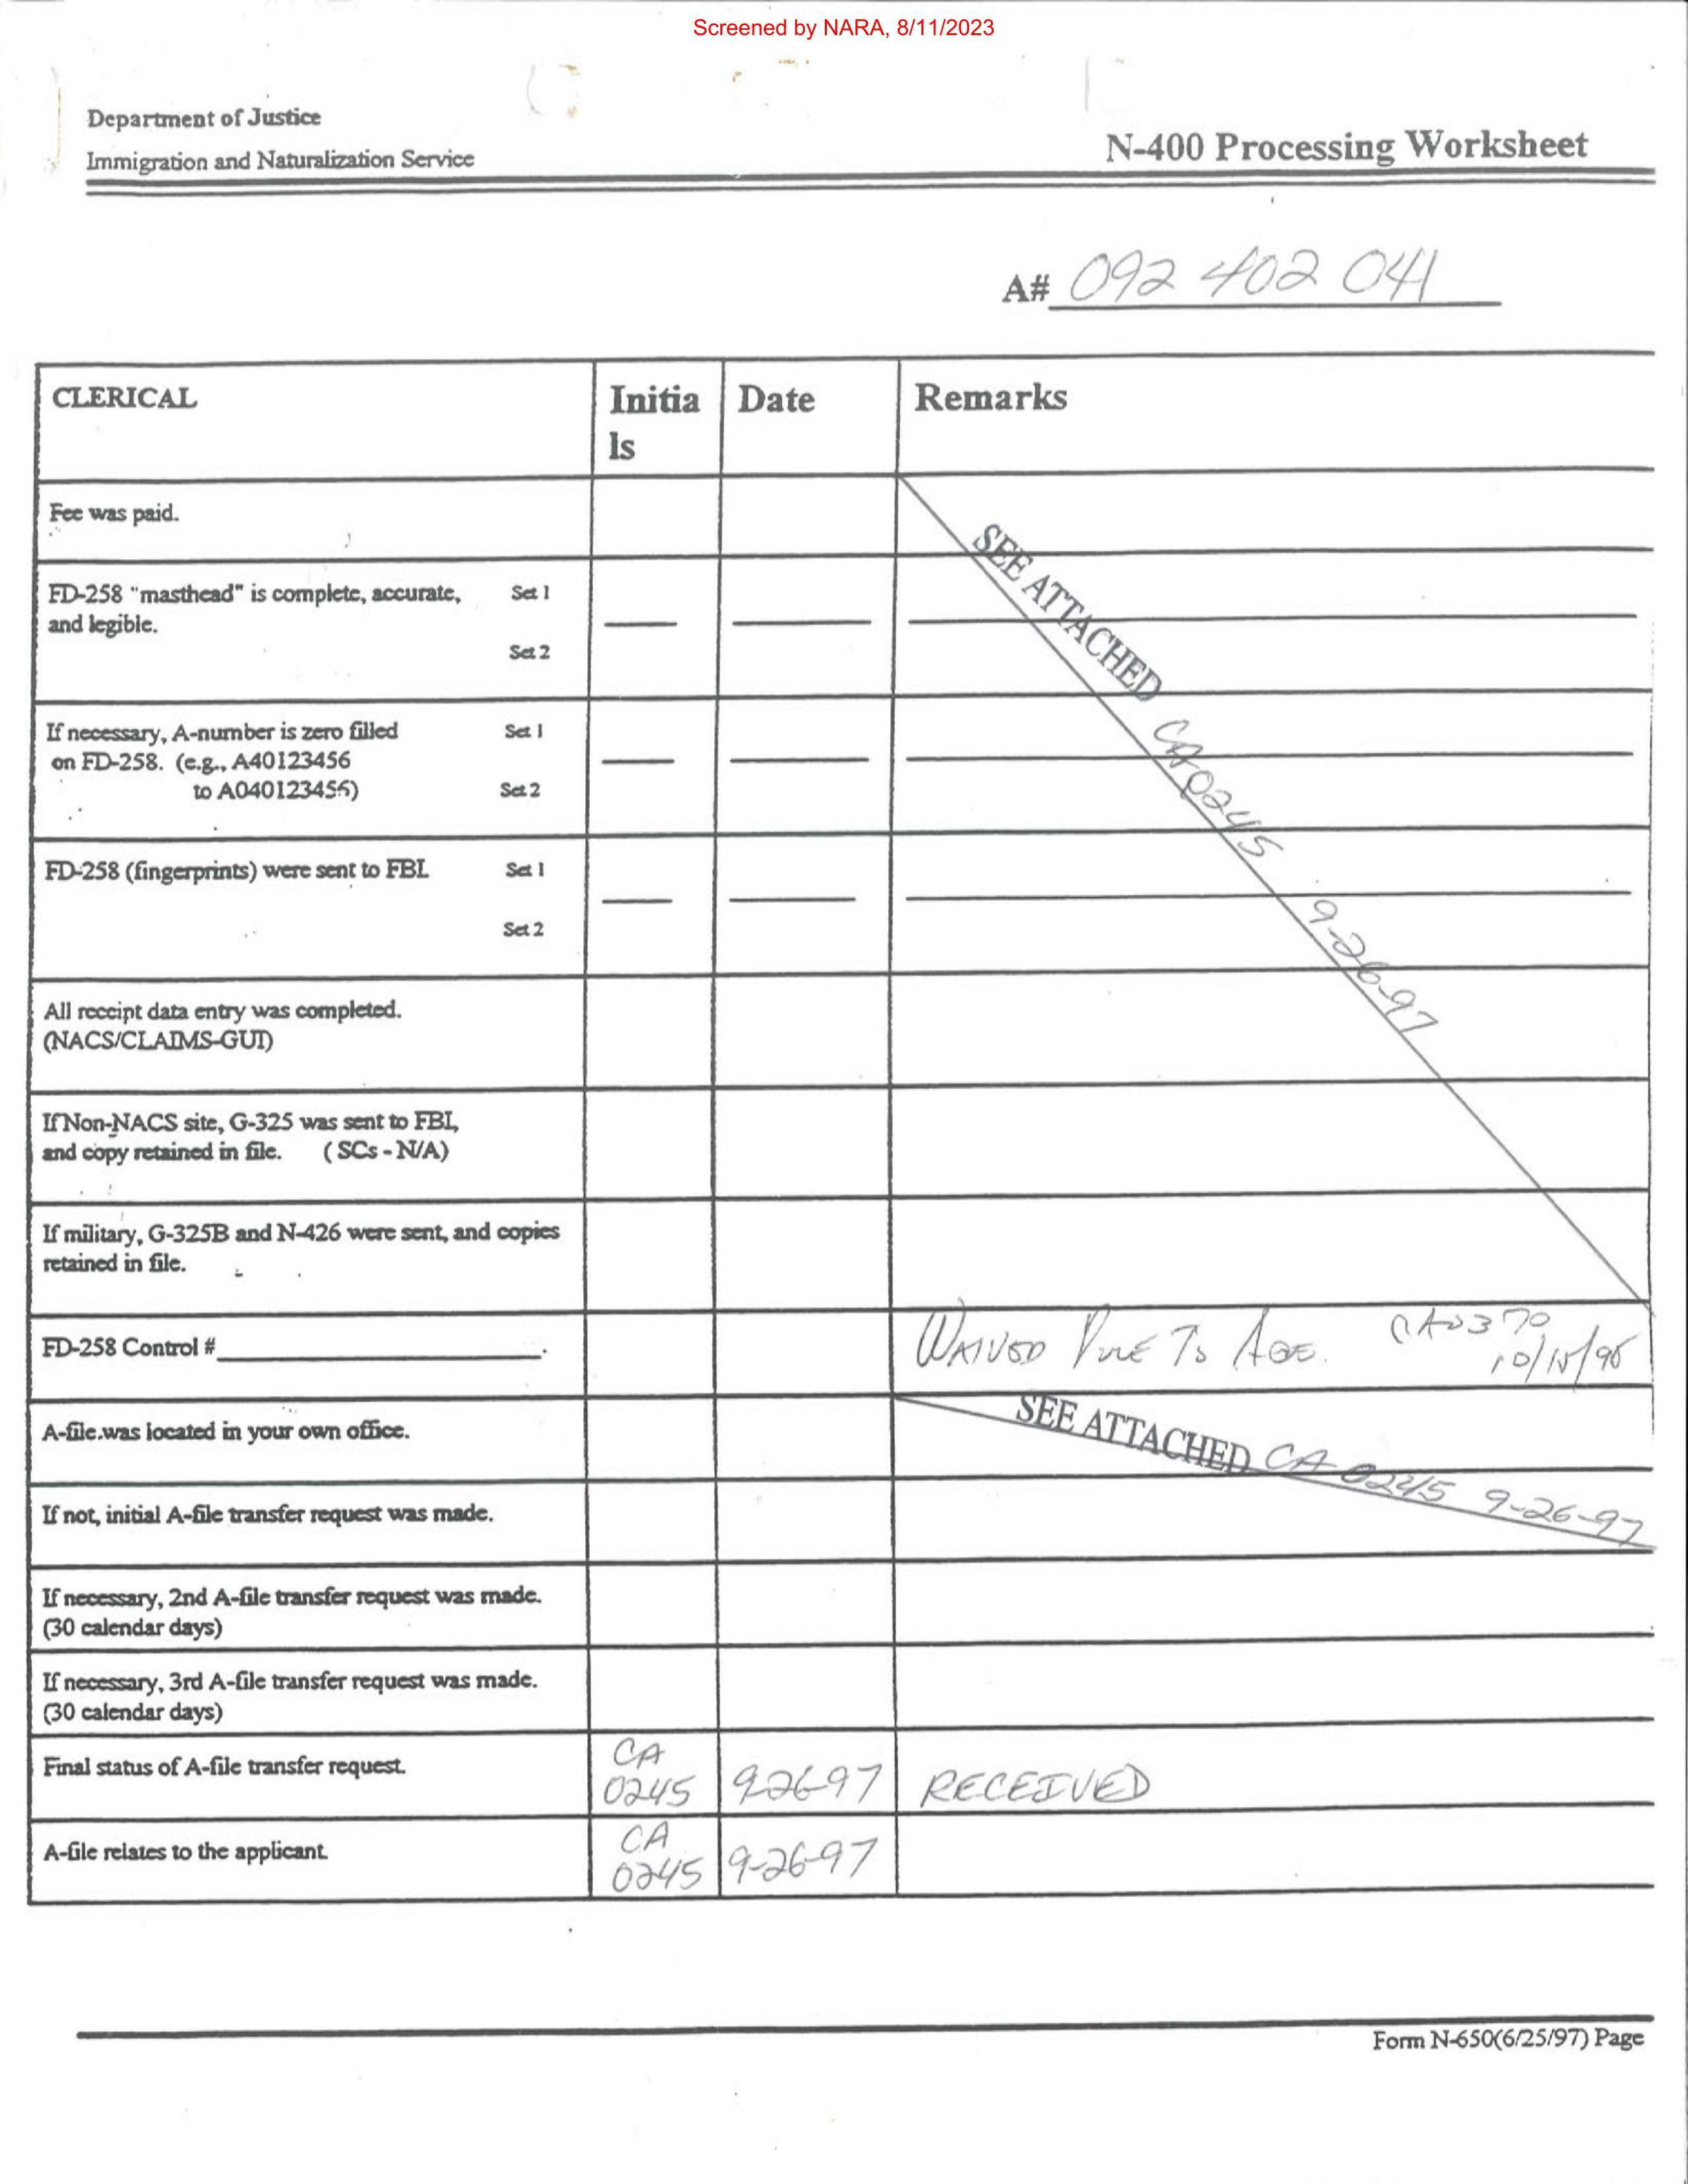 Screened by NARA, 8/11/2023
Department of Justice
Immigration and Naturalization Service
N-400 Processing Worksheet
A# 092 402 041
CLERICAL
Initia
ls
Date
Remarks
Fee was paid.
SEE ATTACHED CA0245 9-26-97
FD-258 "masthead" is complete, accurate, Set 1
and legible.
Set 2
If necessary, A-number is zero filled Set 1
on FD-258. (e.g., A40123456
to A040123456) Set 2
FD-258 (fingerprints) were sent to FBI. Set 1
Set 2
All receipt data entry was completed.
(NACS/CLAIMS-GUI)
If Non-NACS site, G-325 was sent to FBI,
and copy retained in file. ( SCs - N/A)
If military, G-325B and N-426 were sent, and copies
retained in file.
FD-258 Control # WAIVED DUE TO AGE. CA0370
A-file.was located in your own office.
SEE ATTACHED CA 0245 9-26-97
If not, initial A-file transfer request was made.
If necessary, 2nd A-file transfer request was made.
(30 calendar days)
If necessary, 3rd A-file transfer request was made.
(30 calendar days)
Final status of A-file transfer request. CA
0245 9-26-97 RECEIVED
A-file relates to the applicant. CA
0245 9-26-97
Form N-650(6/25/97) Page